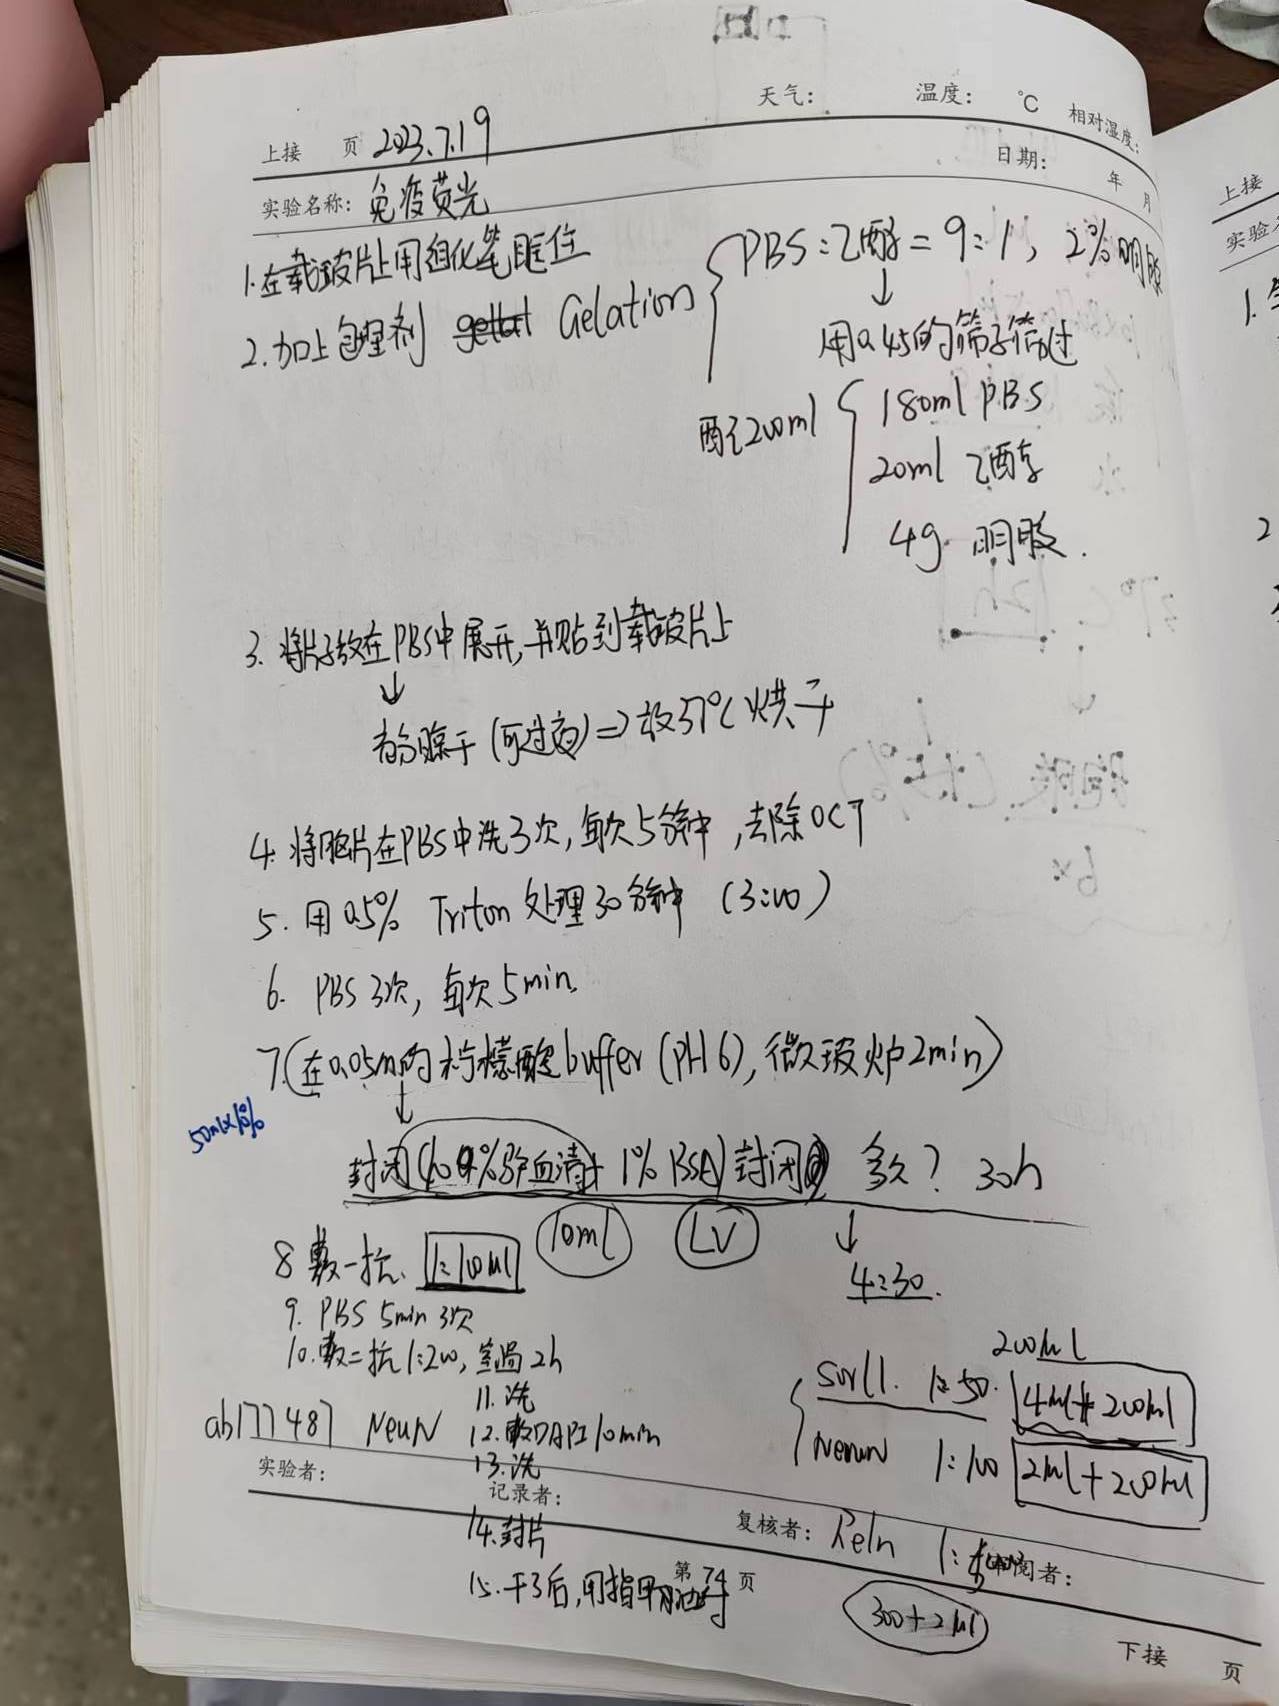 天气： 温度： ℃ 相对湿度：
上接 页 2023.7.19
日期： 年 月
实验名称：免疫荧光
1.在载玻片上用组化笔框住
2.加上包埋剂 Gelation
PBS：乙醇＝9：1，2%明胶
↓
用0.45的筛子筛过
配200ml
180ml PBS
20ml 乙醇
4g 明胶.
3. 将片子放在PBS中展开,并贴到载玻片上
↓
晾干(可过夜)⇒放37℃烘干
4. 将脑片在PBS中洗3次,每次5分钟,去除OCT
5. 用0.5% Triton 处理30分钟 (3:00)
6. PBS 3次, 每次5min.
7.(在0.05m的柠檬酸buffer(pH6),微玻炉2min)
↓
50ml×1%
封闭 %驴血清+1% BSA)封闭 多久？
10ml
↓
4:30.
8 敷一抗.
9. PBS 5min 3次
10.敷二抗1:200,室温2h
11.洗
12.敷DAPI 10min
13.洗
14.封片
15.干了后,用指甲油封
ab177487 NeuN
200ul
1:50. 200ul
1:100 2ul+200ul
Reln
300+2ul
实验者：
记录者：
复核者：
审阅者：
第 74 页
下接 页
上接
实验
1.
2